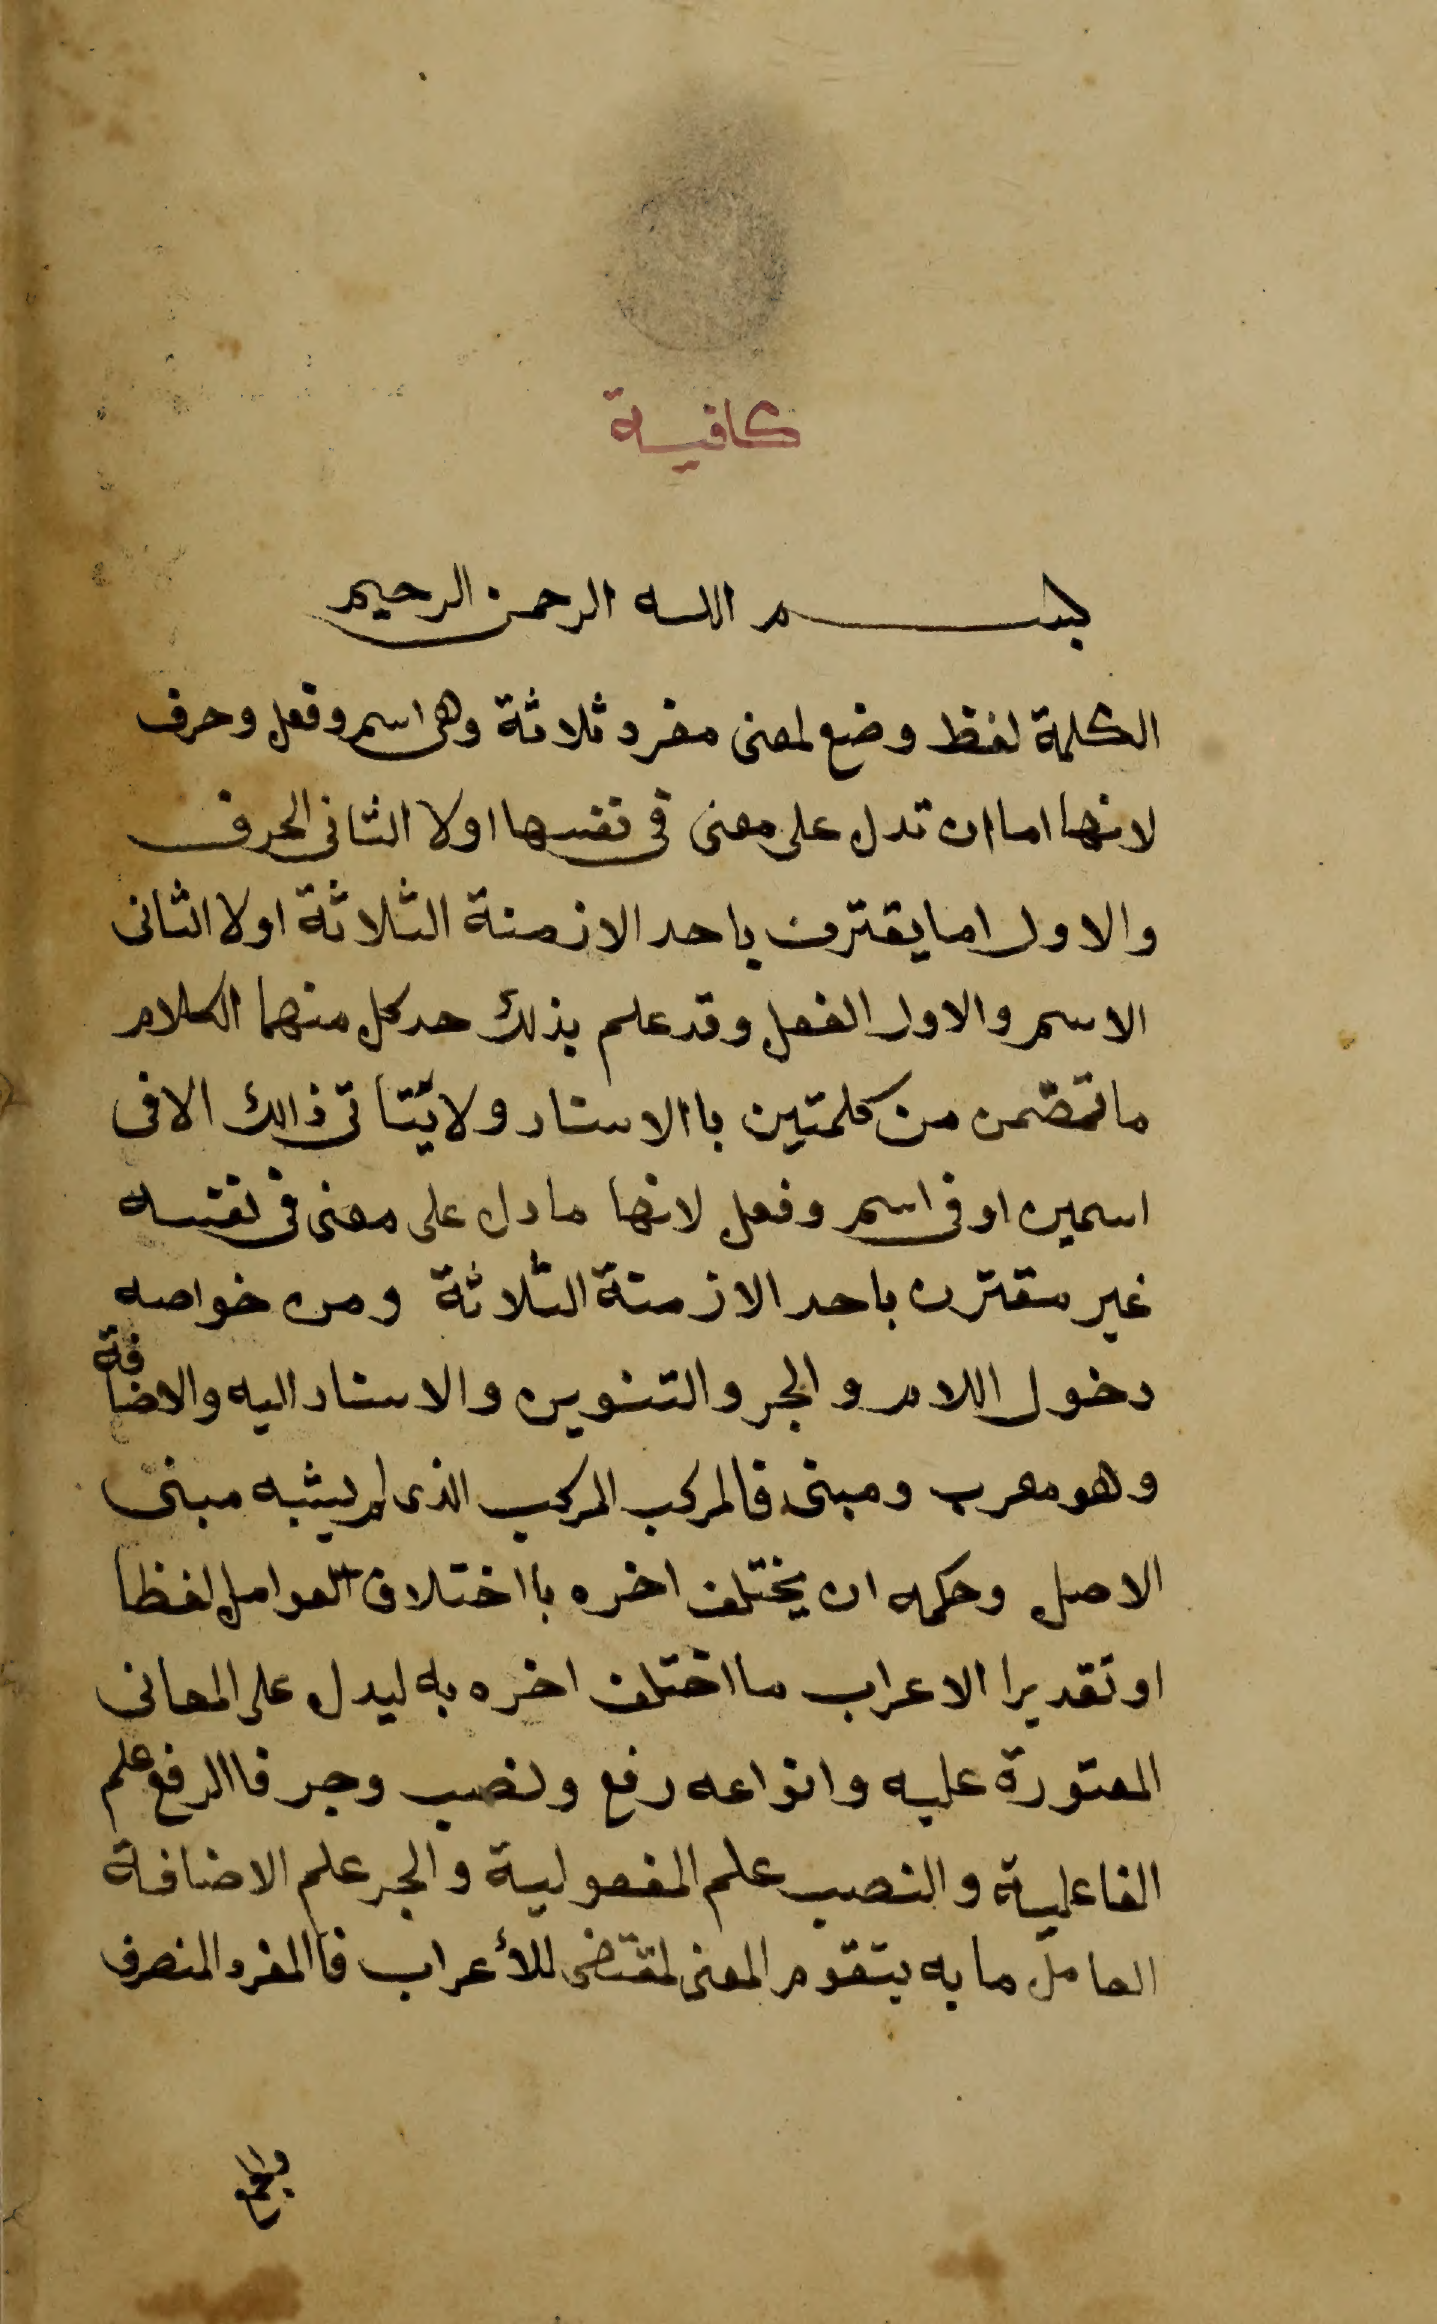 كافية
بسم الله الرحمن الرحيم
الكلمة لفظ وضع لمعنى مفرد ثلاثة وهى اسم وفعل وحرف
لانها اما ان تدل على معنى فى نفسها اولا الثانى الحرف
والاول اما يقترن باحد الازمنة الثلاثة اولا الثانى
الاسم والاول الفعل وقد علم بذلك حد كل منهما الكلام
ما تضمن من كلمتين باالاسناد ولا يتتاتى ذالك الا فى
اسمين او فى اسم وفعل لانها ما دل على معنى فى نفسه
غير مقترن باحد الازمنة الثلاثة ومن خواصه
دخول اللام والجر والتنوين والاسناد اليه والاضافة
وهو معرب ومبنى فالمركب المركب الذى لم يشبه مبنى
الاصل وحكمه ان يختلف اخره بااختلاف العوامل لفظا
او تقديرا الاعراب ما اختلف اخره به ليدل على المعانى
المعتورة عليه وانواعه رفع ونصب وجر فاالرفع علم
الفاعلية والنصب علم المفعولية والجر علم الاضافة
العامل ما به يتقوم المعنى لمقتضى للأعراب فاالمفرد المنصرف
والجمع